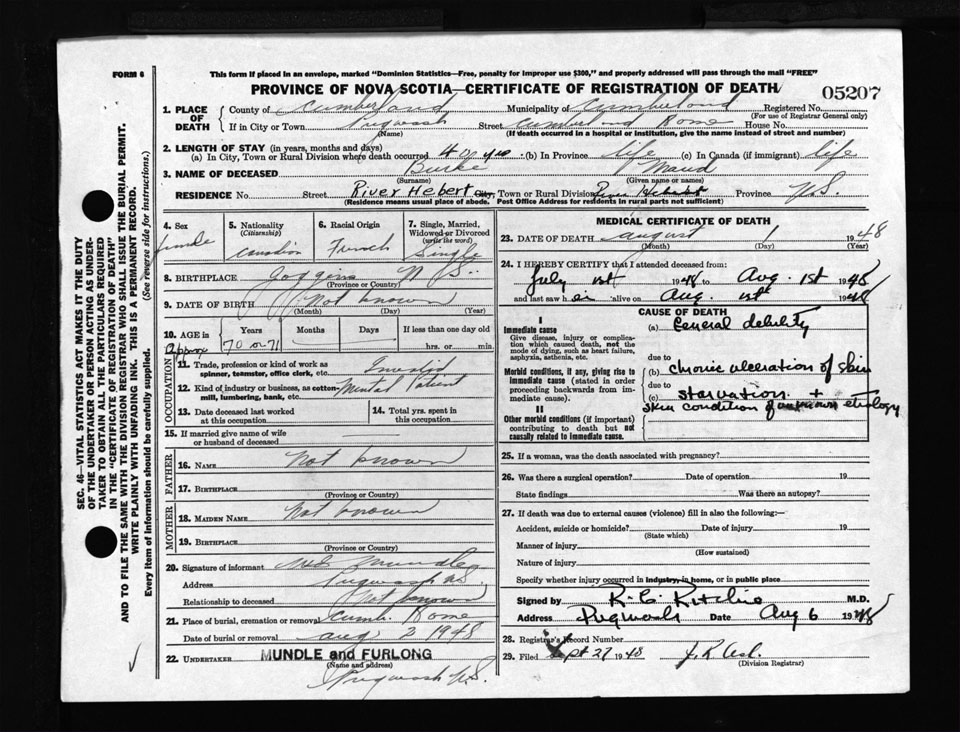 FORM 6
This form if placed in an envelope, marked "Dominion Statistics—Free, penalty for improper use $300," and properly addressed will pass through the mail "FREE"
PROVINCE OF NOVA SCOTIA—CERTIFICATE OF REGISTRATION OF DEATH
05207
1. PLACE OF DEATH County of Cumberland Municipality of Cumberland Registered No.
(For use of Registrar General only)
If in City or Town Pugwash Street Cumberland Home House No.
(Name) (If death occurred in a hospital or institution, give the name instead of street and number)
2. LENGTH OF STAY (in years, months and days)
(a) In City, Town or Rural Division where death occurred 40 yrs (b) In Province life (c) In Canada (if immigrant) life
3. NAME OF DECEASED Burke Maud
(Surname) (Given name or names)
RESIDENCE No. Street River Hebert City, Town or Rural Division River Hebert Province N.S.
(Residence means usual place of abode. Post Office Address for residents in rural parts not sufficient)
4. Sex
female
5. Nationality
(Citizenship)
Canadian
6. Racial Origin
French
7. Single, Married, Widowed or Divorced
(write the word)
Single
8. BIRTHPLACE Joggins N S.
(Province or Country)
9. DATE OF BIRTH Not known
(Month) (Day) (Year)
10. AGE in Years Months Days If less than one day old
Approx 70 or 71 hrs. or min.
OCCUPATION
11. Trade, profession or kind of work as spinner, teamster, office clerk, etc. Invalid
12. Kind of industry or business, as cotton-mill, lumbering, bank, etc. Mental Patient
13. Date deceased last worked at this occupation
14. Total yrs. spent in this occupation
15. If married give name of wife or husband of deceased
FATHER
16. NAME Not known
17. BIRTHPLACE
(Province or Country)
MOTHER
18. MAIDEN NAME Not known
19. BIRTHPLACE
(Province or Country)
20. Signature of informant Mundle
Address Pugwash N.S.
Relationship to deceased Not known
21. Place of burial, cremation or removal Cumb. Home
Date of burial or removal Aug 2 1948
22. UNDERTAKER MUNDLE and FURLONG
(Name and address)
Pugwash N.S.
MEDICAL CERTIFICATE OF DEATH
23. DATE OF DEATH August 1 1948
(Month) (Day) (Year)
24. I HEREBY CERTIFY that I attended deceased from:
July 1st 1948 to Aug. 1st 1948
and last saw h er alive on Aug. 1st 1948
CAUSE OF DEATH
I
Immediate cause
Give disease, injury or complication which caused death, not the mode of dying, such as heart failure, asphyxia, asthenia, etc.
(a) General debility
due to
Morbid conditions, if any, giving rise to immediate cause (stated in order proceeding backwards from immediate cause).
(b) chronic ulceration of skin
due to
(c) starvation +
skin condition of unknown etiology
II
Other morbid conditions (if important) contributing to death but not causally related to immediate cause.
25. If a woman, was the death associated with pregnancy?
26. Was there a surgical operation? Date of operation 19
State findings Was there an autopsy?
27. If death was due to external causes (violence) fill in also the following:—
Accident, suicide or homicide? Date of injury 19
(State which)
Manner of injury
(How sustained)
Nature of injury
Specify whether injury occurred in industry, in home, or in public place
Signed by R. C. Ritchie M.D.
Address Pugwash Date Aug 6 1948
28. Registrar's Record Number
29. Filed Sept 27 1948
(Division Registrar)
SEC. 46—VITAL STATISTICS ACT MAKES IT THE DUTY
OF THE UNDERTAKER OR PERSON ACTING AS UNDER-
TAKER TO OBTAIN ALL THE PARTICULARS REQUIRED
IN THE "CERTIFICATE OF REGISTRATION OF DEATH"
AND TO FILE THE SAME WITH THE DIVISION REGISTRAR WHO SHALL ISSUE THE BURIAL PERMIT.
WRITE PLAINLY WITH UNFADING INK. THIS IS A PERMANENT RECORD.
Every item of information should be carefully supplied. (See reverse side for instructions.)